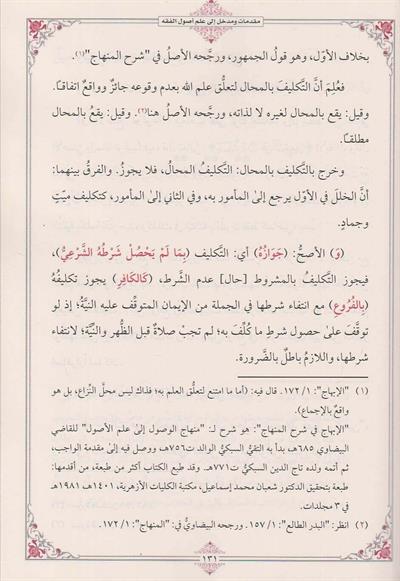 مقدمات ومدخل إلى علم أصول الفقه
بخلاف الأوّل، وهو قولُ الجمهور، ورجَّحه الأصلُ في "شرح المنهاج"(١).
فعُلِم أنَّ التَّكليفَ بالمحال لتعلُّق علم الله بعدم وقوعه جائزٌ وواقعٌ اتفاقـًا.
وقيل: يقع بالمحال لغيره لا لذاته، ورجَّحه الأصلُ هنا(٢). وقيل: يقعُ بالمحال
مطلقـًا.
وخرج بالتَّكليف بالمحال: التَّكليفُ المحالُ، فلا يجوزُ. والفرقُ بينهما:
أنَّ الخللَ في الأوّل يرجع إلى المأمور به، وفي الثاني إلى المأمور، كتكليف ميّتٍ
وجمادٍ.
(وَ) الأصحُّ: (جَوَازُهُ) أي: التَّكليف (بِمَا لَمْ يَحْصُلْ شَرْطُهُ الشَّرْعِيُّ)،
فيجوز التَّكليفُ بالمشروط [حال] عدم الشَّرط، (كَالكَافِرِ) يجوز تكليفُهُ
(بِالفُرُوعِ) مع انتفاء شرطها في الجملة من الإيمان المتوقِّف عليه النيَّةُ؛ إذ لو
توقَّفَ على حصول شرطِ ما كُلِّفَ به؛ لم تجبْ صلاةٌ قبل الطُّهر والنِّيَّة؛ لانتفاء
شرطها، واللازمُ باطلٌ بالضَّرورة.
(١) "الإبهاج": ١/ ١٧٢. قال فيه: (أما ما امتنع لتعلُّق العلم به؛ فذاك ليس محلَّ النِّزاع، بل هو
واقعٌ بالإجماع).
"الإبهاج في شرح المنهاج": هو شرحٌ لـ: "منهاج الوصول إلى علم الأصول" للقاضي
البيضاوي ٦٨٥هـ، بدأ به التقيُّ السبكيُّ الوالد ت٧٥٦هـ، ووصل فيه إلى مقدمة الواجب،
ثم أتمه ولده تاج الدين السبكيُّ ت٧٧١هـ. وقد طبع الكتاب أكثر من طبعة، من أقدمها:
طبعة بتحقيق الدكتور شعبان محمد إسماعيل، مكتبة الكليات الأزهرية، ١٤٠١هـ ١٩٨١م
في ٣ مجلدات.
(٢) انظر: "البدر الطالع": ١/ ١٥٧. ورجحه البيضاويُّ في: "المنهاج": ١/ ١٧٢.
١٣١